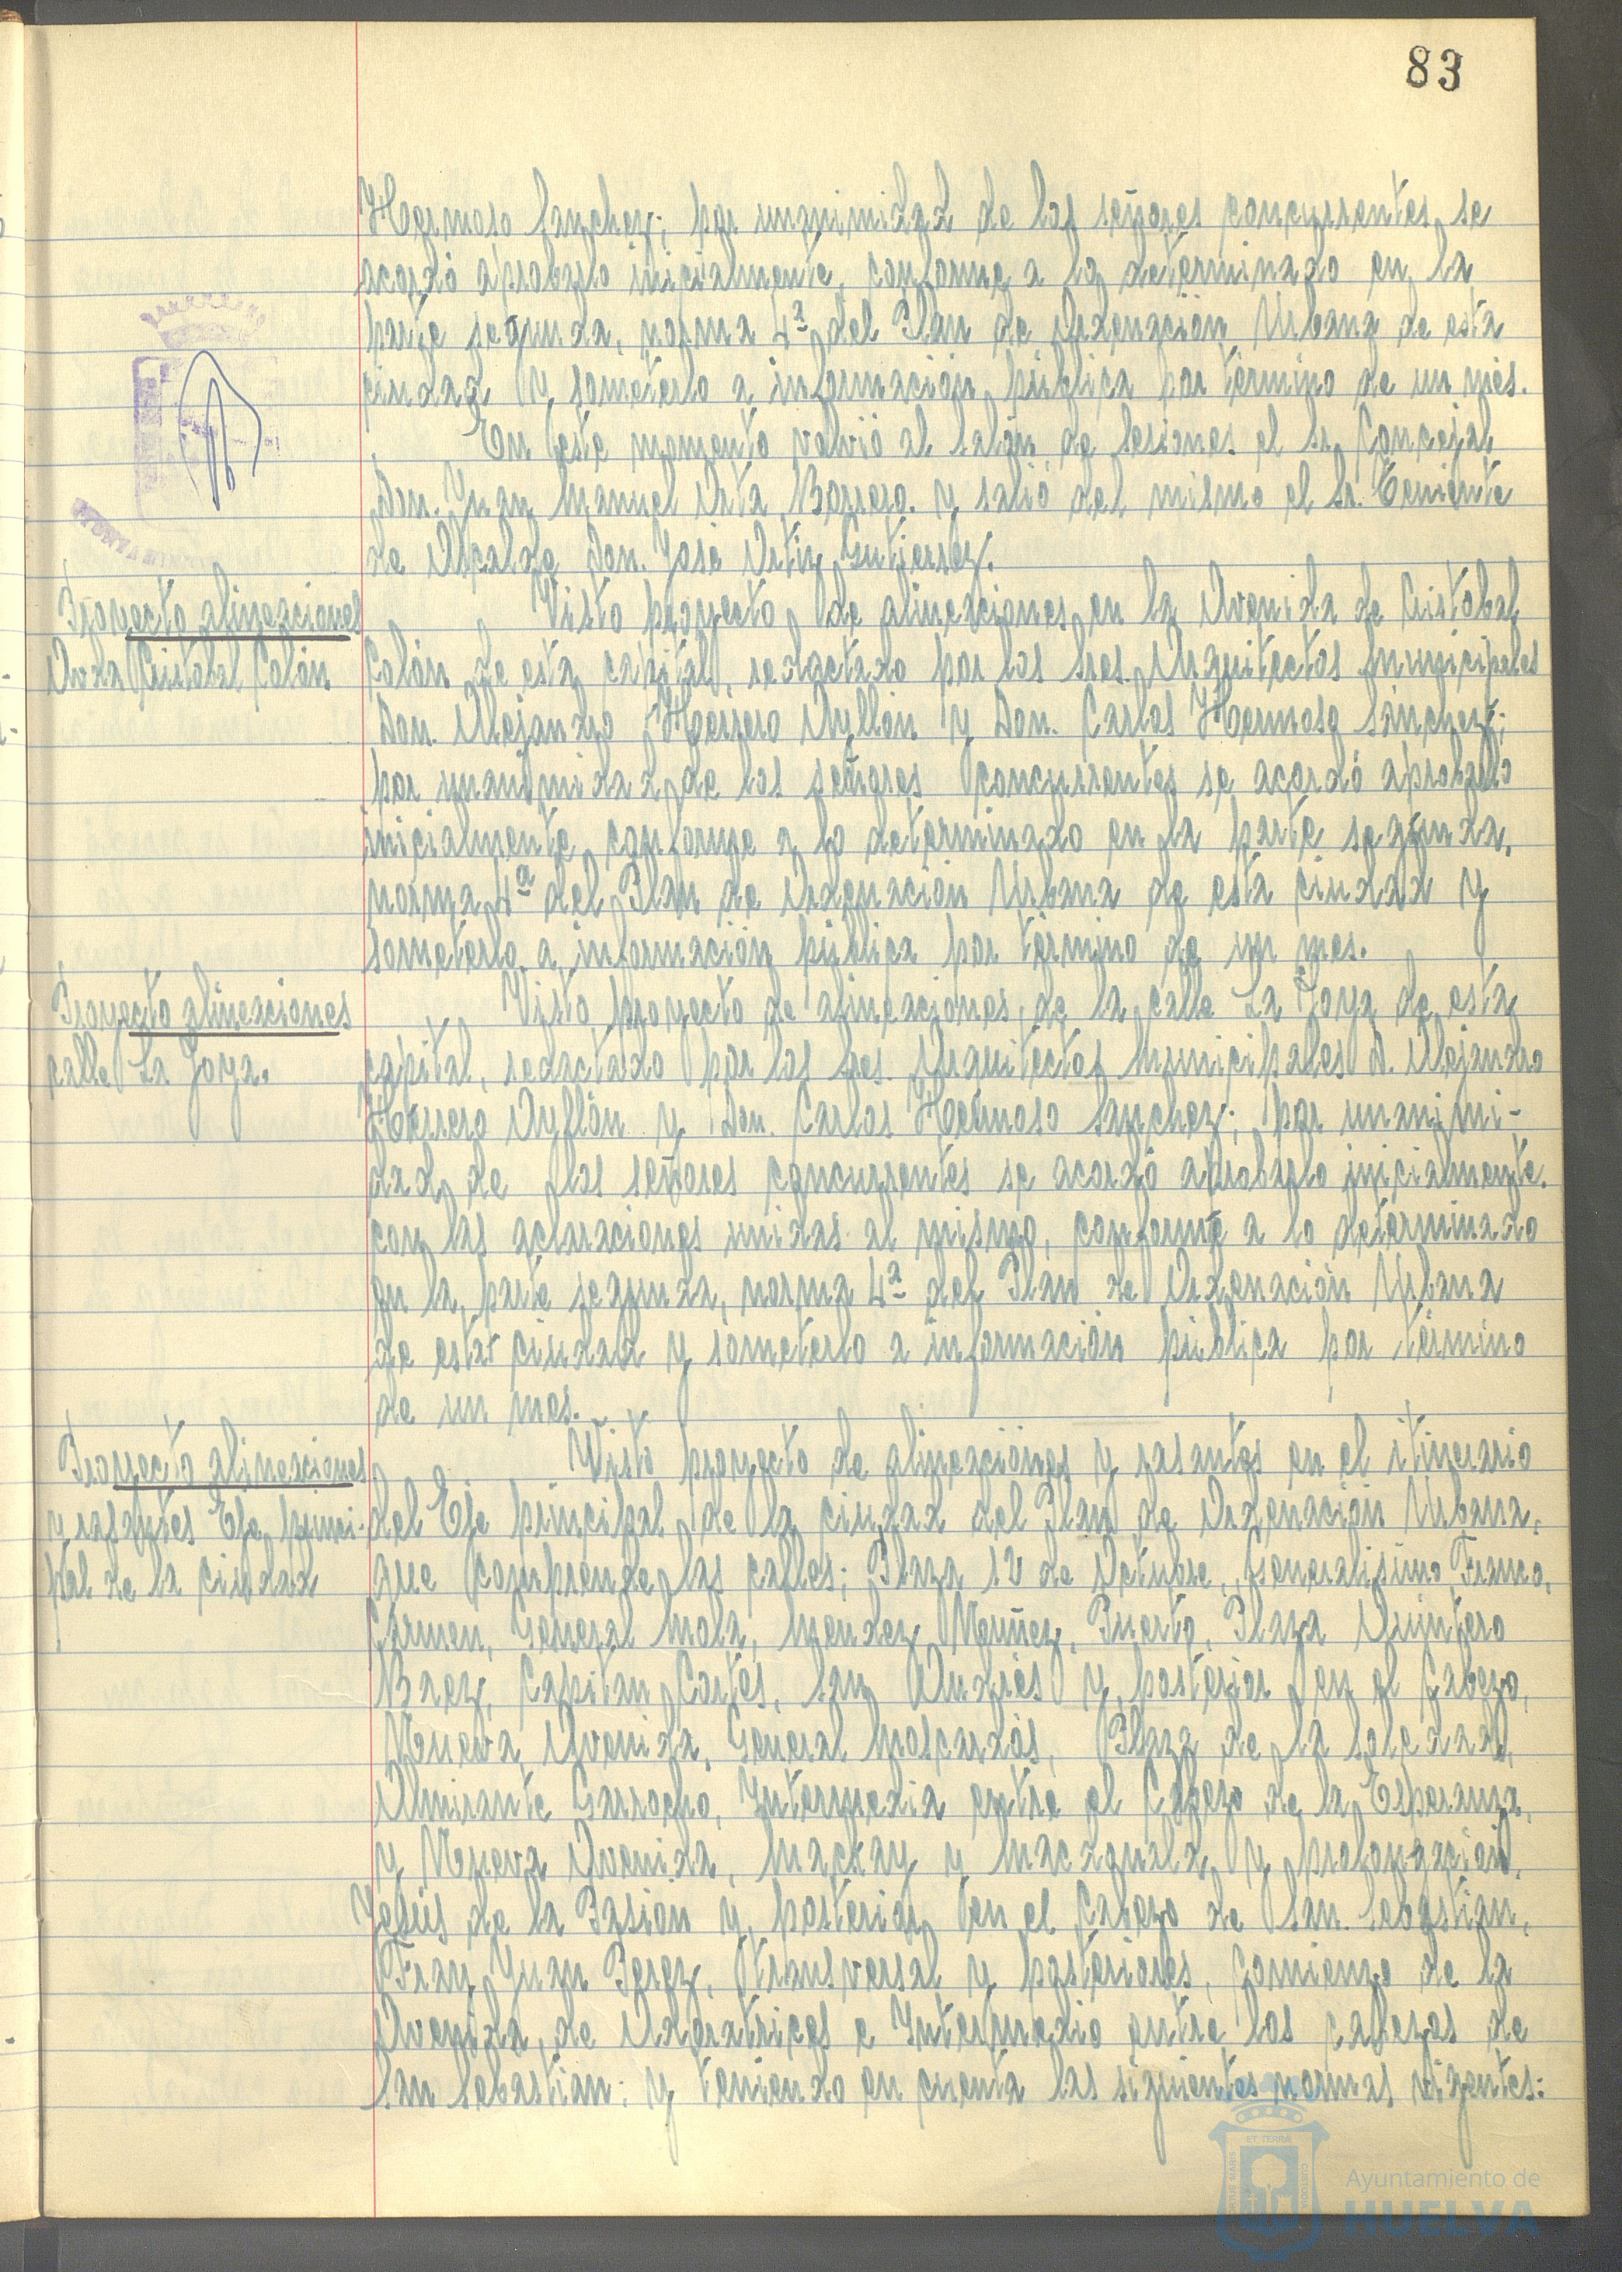 83
Hermoso Sanchez; por unanimidad de los señores concurrentes se
acordó aprobarlo inicialmente, conforme a lo determinado en la
parte segunda, norma 4ª del Plan de Ordenación Urbana de esta
ciudad y someterlo a información pública por término de un mes.
En este momento volvió al Salón de Sesiones el Sr. Concejal
Don. Juan Manuel Orta Borrero y salió del mismo el Sr. Teniente
de Alcalde Don. José Ortiz Gutierrez.
Proyecto alineaciones
Avda Cristobal Colón
Visto proyecto de alineaciones en la Avenida de Cristobal
Colón de esta capital, redactado por los Sres. Arquitectos Municipales
Don. Alejandro Herrero Ayllón y Don. Carlos Hermoso Sánchez;
por unanimidad de los señores concurrentes se acordó aprobarlo
inicialmente conforme a lo determinado en la parte segunda,
norma 4ª del Plan de Ordenación Urbana de esta ciudad y
someterlo a información pública por término de un mes.
Proyecto alineaciones
calle La Joya.
Visto proyecto de alineaciones, de la calle La Joya de esta
capital, redactado por los Sres. Arquitectos Municipales D. Alejandro
Herrero Ayllón y Don. Carlos Hermoso Sanchez; por unanimi-
dad de los señores concurrentes se acordó aprobarlo inicialmente.
con las aclaraciones unidas al mismo, conforme a lo determinado
en la parte segunda, norma 4ª del Plan de Ordenación Urbana
de esta ciudad y someterlo a información pública por término
de un mes.
Proyecto alineaciones
y rasantes Eje princi-
pal de la ciudad
Visto proyecto de alineaciones y rasantes en el itinerario
del Eje principal de la ciudad del Plan de Ordenación Urbana,
que comprende las calles; Plaza 12 de Octubre, Generalisimo Franco,
Carmen, General Mola, Mendez Nuñez, Puerto, Plaza Quintero
Baez, Capitan Cortés, San Andrés y posterior en el Cabezo,
Nueva Avenida, General Moscardós, Plaza de la Soledad,
Almirante Garrocho, Intermedia entre el Cabezo de la Esperanza,
y Nueva Avenida, Mackay y Macdonald y prolongación,
Jesús de la Pasión y posterior en el Cabezo de San Sebastian,
Fray Juan Perez, transversal y posteriores, Comienzo de la
Avenida de Adoratrices e Intermedio entre los cabezos de
San Sebastian; y teniendo en cuenta las siguientes normas vigentes:
Ayuntamiento de
HUELVA